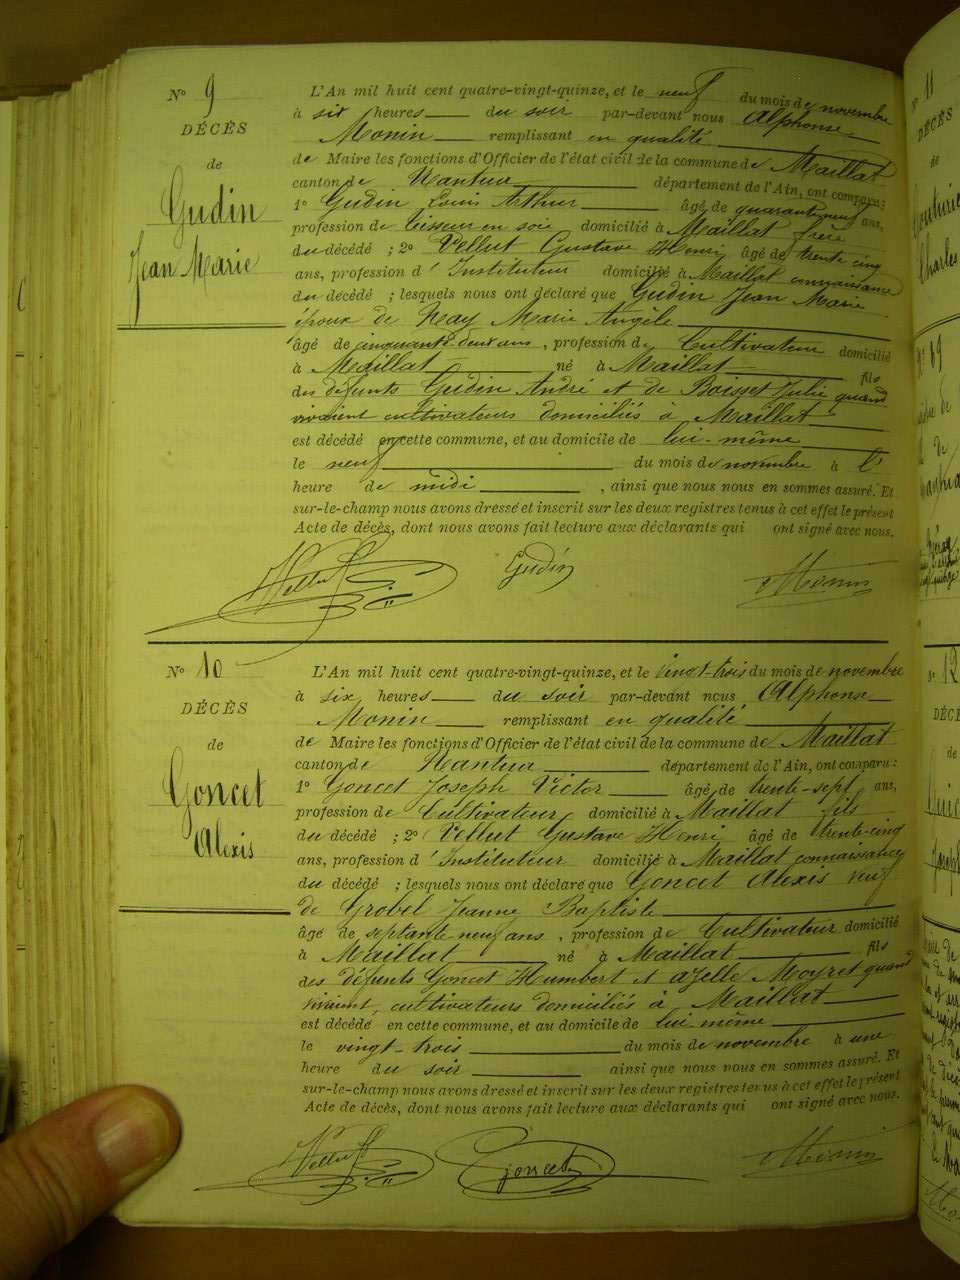 N° 9
DÉCÈS
de
Gudin
Jean Marie
L'An mil huit cent quatre-vingt-quinze, et le neuf du mois de novembre
à six heures du soir par-devant nous Alphonse
Monin remplissant en qualité
de Maire les fonctions d'Officier de l'état civil de la commune de Maillat
canton de Nantua département de l'Ain, ont comparu:
1° Gudin Louis Arthur âgé de quarante neuf ans,
profession de tisseur en soie domicilié à Maillat frère
du décédé ; 2° Vellut Gustave Henri âgé de trente cinq
ans, profession d'Instituteur domicilié à Maillat connaissance
du décédé ; lesquels nous ont déclaré que Gudin Jean Marie
époux de Nay Marie Angèle
âgé de cinquante deux ans, profession de Cultivateur domicilié
à Maillat né à Maillat fils
des défunts Gudin André et de Boisset Julie quand
vivaient cultivateurs domiciliés à Maillat
est décédé en cette commune, et au domicile de lui-même
le neuf du mois de novembre à l'
heure de midi , ainsi que nous nous en sommes assuré. Et
sur-le-champ nous avons dressé et inscrit sur les deux registres tenus à cet effet le présent
Acte de décès, dont nous avons fait lecture aux déclarants qui ont signé avec nous.
Vellut Gudin Monin
N° 10
DÉCÈS
de
Goncet
Alexis
L'An mil huit cent quatre-vingt-quinze, et le vingt-trois du mois de novembre
à six heures du soir par-devant nous Alphonse
Monin remplissant en qualité
de Maire les fonctions d'Officier de l'état civil de la commune de Maillat
canton de Nantua département de l'Ain, ont comparu:
1° Goncet Joseph Victor âgé de trente-sept ans,
profession de Cultivateur domicilié à Maillat fils
du décédé ; 2° Vellut Gustave Henri âgé de trente-cinq
ans, profession d'Instituteur domicilié à Maillat connaissance
du décédé ; lesquels nous ont déclaré que Goncet Alexis veuf
de Grobel Jeanne Baptiste
âgé de septante-neuf ans, profession de Cultivateur domicilié
à Maillat né à Maillat fils
des défunts Goncet Humbert et Moyret quand
vivaient, cultivateurs domiciliés à Maillat
est décédé en cette commune, et au domicile de lui-même
le vingt-trois du mois de novembre à une
heure du soir ainsi que nous nous en sommes assuré. Et
sur-le-champ nous avons dressé et inscrit sur les deux registres tenus à cet effet le présent
Acte de décès, dont nous avons fait lecture aux déclarants qui ont signé avec nous.
Vellut Goncet Monin
N° 11
DÉCÈS
de
Charles
N° 12
de